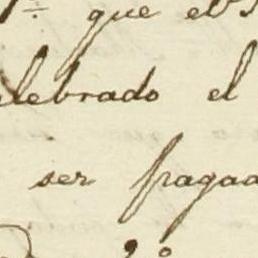 que el S
elebrado el
ser pagad
2º